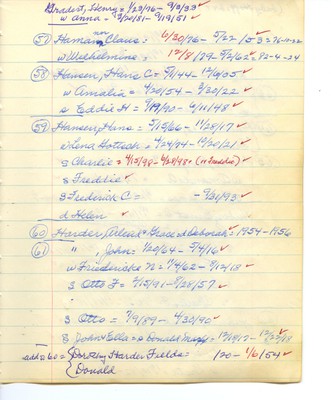 Gradert, Henry = 1/23/76 - 9/3/33 ✓
w Anna - 2/20/81 - 9/19/51 ✓
57 Hamann, Claus: 6/30/76 - 5/22/53 = 76-10-22
w Wilhelmine: 12/8/79 - 5/2/62 = 82-4-24
58 Hansen, Hans C = 5/1/44 - 12/6/05 ✓
w Amalia = 4/20/54 - 8/30/22 ✓
s Eddie H = 7/19/90 - 6/11/48 ✓
59 Hansen, Hans = 5/19/66 - 11/28/17 ✓
w Lena = 4/24/84 - 10/20/21 ✓
s Charlie = 4/13/98 - 6/28/48 ✓ (or Freddie) ✓
s Freddie ✓
s Frederick C = - 9/21/93 ✓
d Helen ✓
60 Harder, Arleat Grace & Deborah = 1954-1956
61 " , John = 1/20/64 - 5/4/16 ✓
w Friedericke N = 11/4/62 - 9/12/18 ✓
s Otto F = 2/15/91 - 5/28/57 ✓
s Otto = 7/9/89 - 4/30/90 ✓
B John & Ella = s Donald = 12/19/17 - 12/22/18
add to 60 = { Dorothy Harder Fields = 1/20 - 1/6/54 ✓
{ Donald